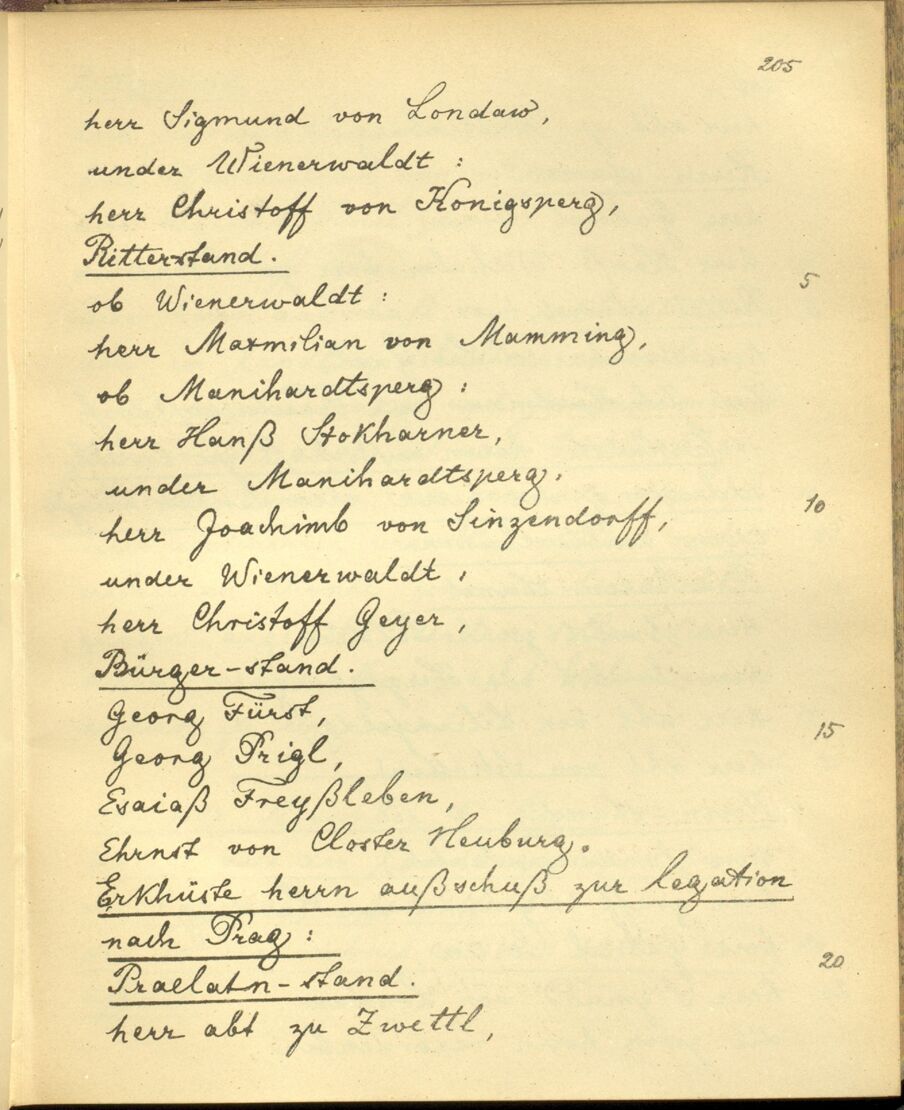 205
herr Sigmund von Londaw,
under Wienerwaldt :
herr Christoff von Königsperg,
Ritterstand.
ob Wienerwaldt : 5
herr Maxmilian von Mamming,
ob Manihardtsperg :
herr Hanß Stokharner,
under Manihardtsperg,
herr Joachimb von Sinzendorff, 10
under Wienerwaldt ,
herr Christoff Geyer,
Bürger-stand.
Georg Fürst,
Georg Prigl, 15
Esaiaß Freyßleben,
Ehrnst von Closter Neuburg.
Erkhüste herrn außschuß zur legation
nach Prag :
Praelatn-stand. 20
herr abt zu Zwettl,